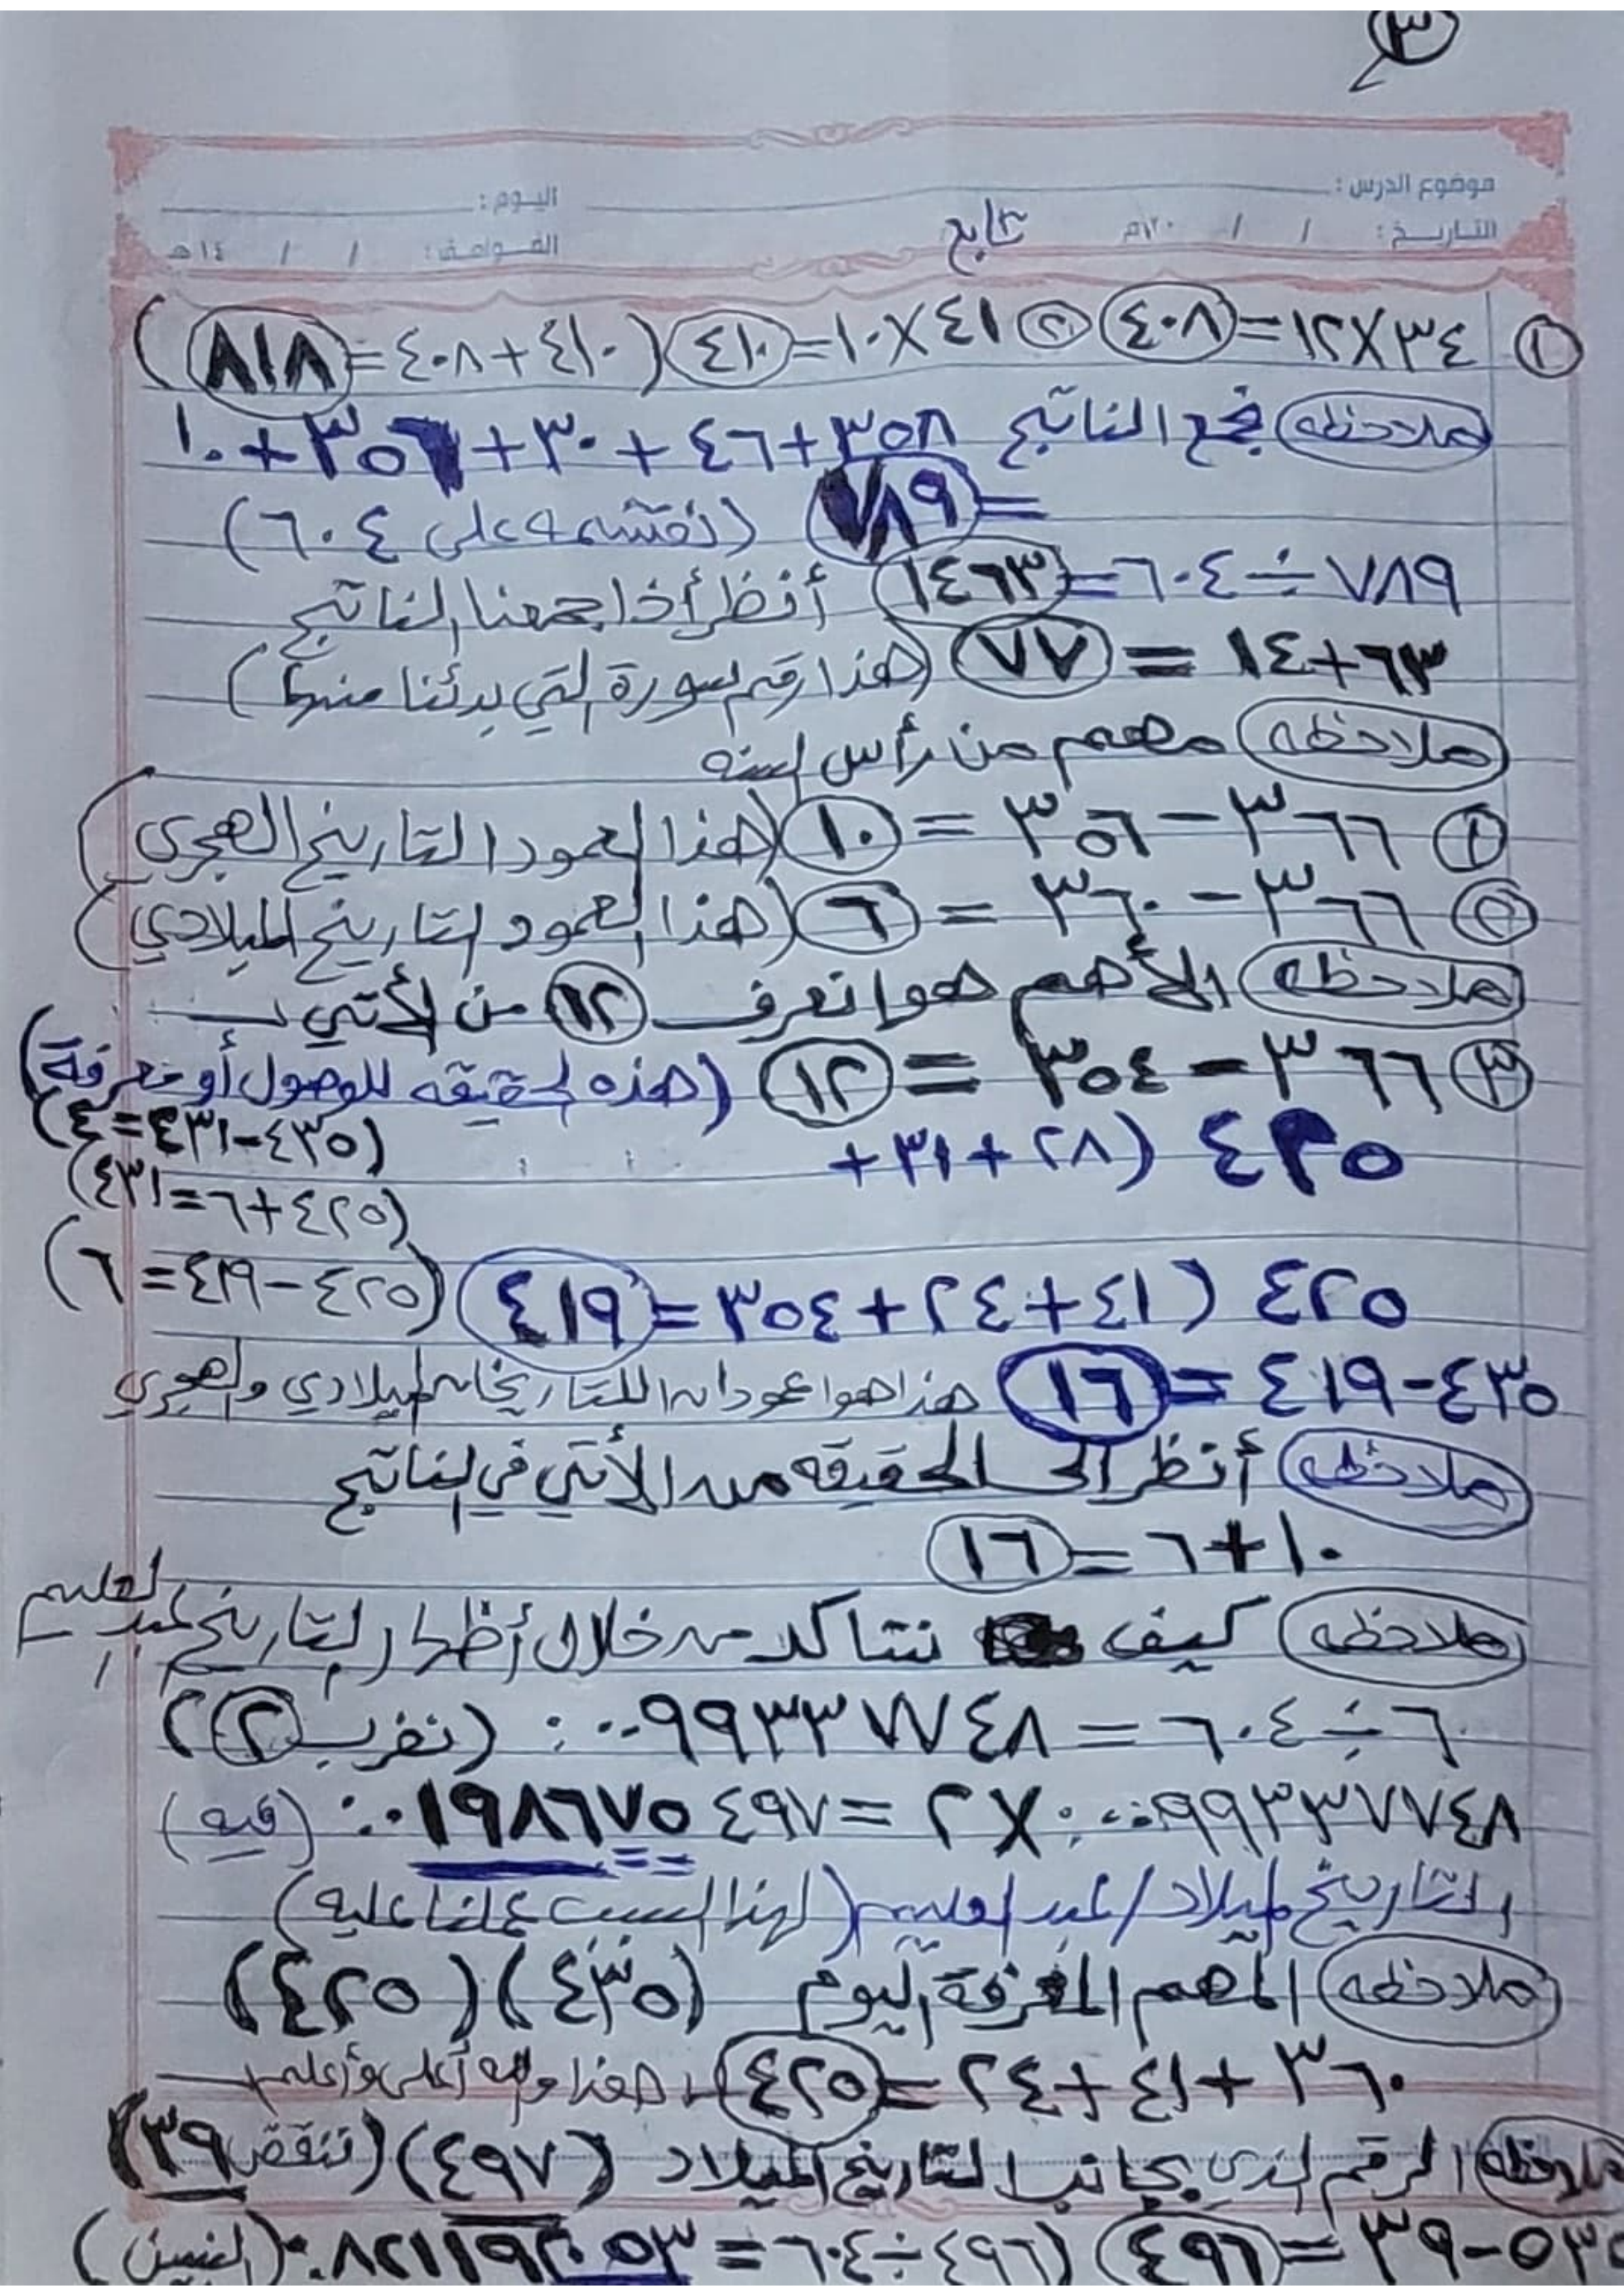 ٣
موضوع الدرس : اليوم :
التاريخ : / / ٢٠١م تابع الموافق : / / ١٤هـ
① ٣٤×١٢=٤٠٨ ② ٤١×١٠=٤١٠ (٤١٠+٤٠٨=٨١٨)
ملاحظه نجمع الناتج ٣٥٨+٤٦+٣٠+٣٥٦+١٠
=٧٨٩ (نقسمه على ٦٠٤)
٧٨٩÷٦٠٤=١٤٦٣ أنظر أذا جمعنا الناتج
٦٣+١٤=٧٧ (هذا رقم سورة التي بدئنا منها)
ملاحظه مهم من رأس السنه
① ٣٦٦-٣٥٦=١٠ (هذا العمود التاريخ الهجري)
② ٣٦٦-٣٦٠=٦ (هذا العمود التاريخ الميلادي)
ملاحظه الأهم هوا نعرف ١٢ من الأتي
③ ٣٦٦-٣٥٤=١٢ (هذه الحقيقه للوصول أو معرفة)
(٤٣٥-٤٣١=٤)
٤٣٥ (٢٨+٣١+
(٤٢٥+٦=٤٣١)
٤٢٥ (٤١+٢٤+٣٥٤=٤١٩) (٤٢٥-٤١٩=٦)
٤٣٥-٤١٩=١٦ هذا هوا عمودان اللتاريخان الميلادي والهجري
ملاحظه أنظر الى الحقيقه من الأتي في الناتج
١٠+٦=١٦
ملاحظه كيف نتاكد من خلال أظهار التاريخ عبد العليم
٦÷٦٠٤=٠.٠٠٩٩٣٣٧٧٤٨ (نضرب ٢)
٠.٠٠٩٩٣٣٧٧٤٨×٢=٠.٠١٩٨٦٧٥٤٩٧ (فيه)
التاريخ الميلاد/عبد العليم (لهذا السبب عملنا عليه)
ملاحظه المهم المعرفة اليوم (٤٣٥) (٤٢٥)
٣٦٠+٤١+٢٤=٤٢٥ هذا والله أعلى وأعلم
ملاحظه الرقم الذي بجانب التاريخ الميلاد (٤٩٧) (تنقص ٣٩)
٥٣٥-٣٩=٤٩٦ (٤٩٦÷٦٠٤=٠.٨٢١١٩٢٠٥٣)